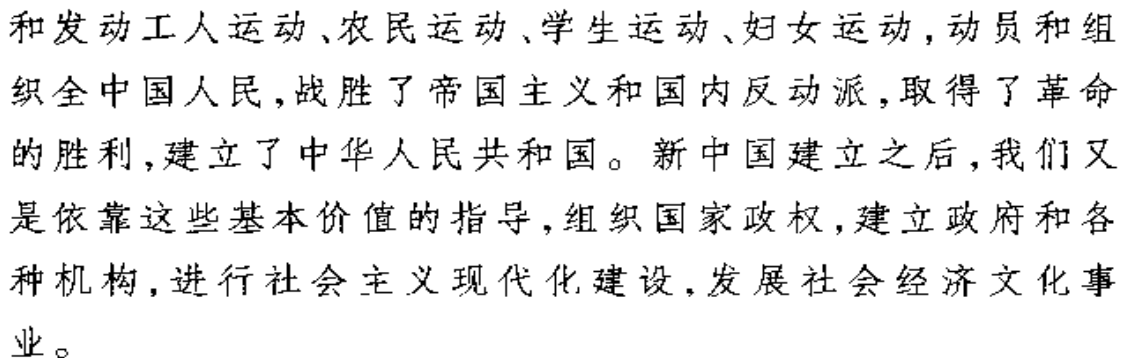 和发动工人运动、农民运动、学生运动、妇女运动,动员和组
织全中国人民,战胜了帝国主义和国内反动派,取得了革命
的胜利,建立了中华人民共和国。新中国建立之后,我们又
是依靠这些基本价值的指导,组织国家政权,建立政府和各
种机构,进行社会主义现代化建设,发展社会经济文化事
业。